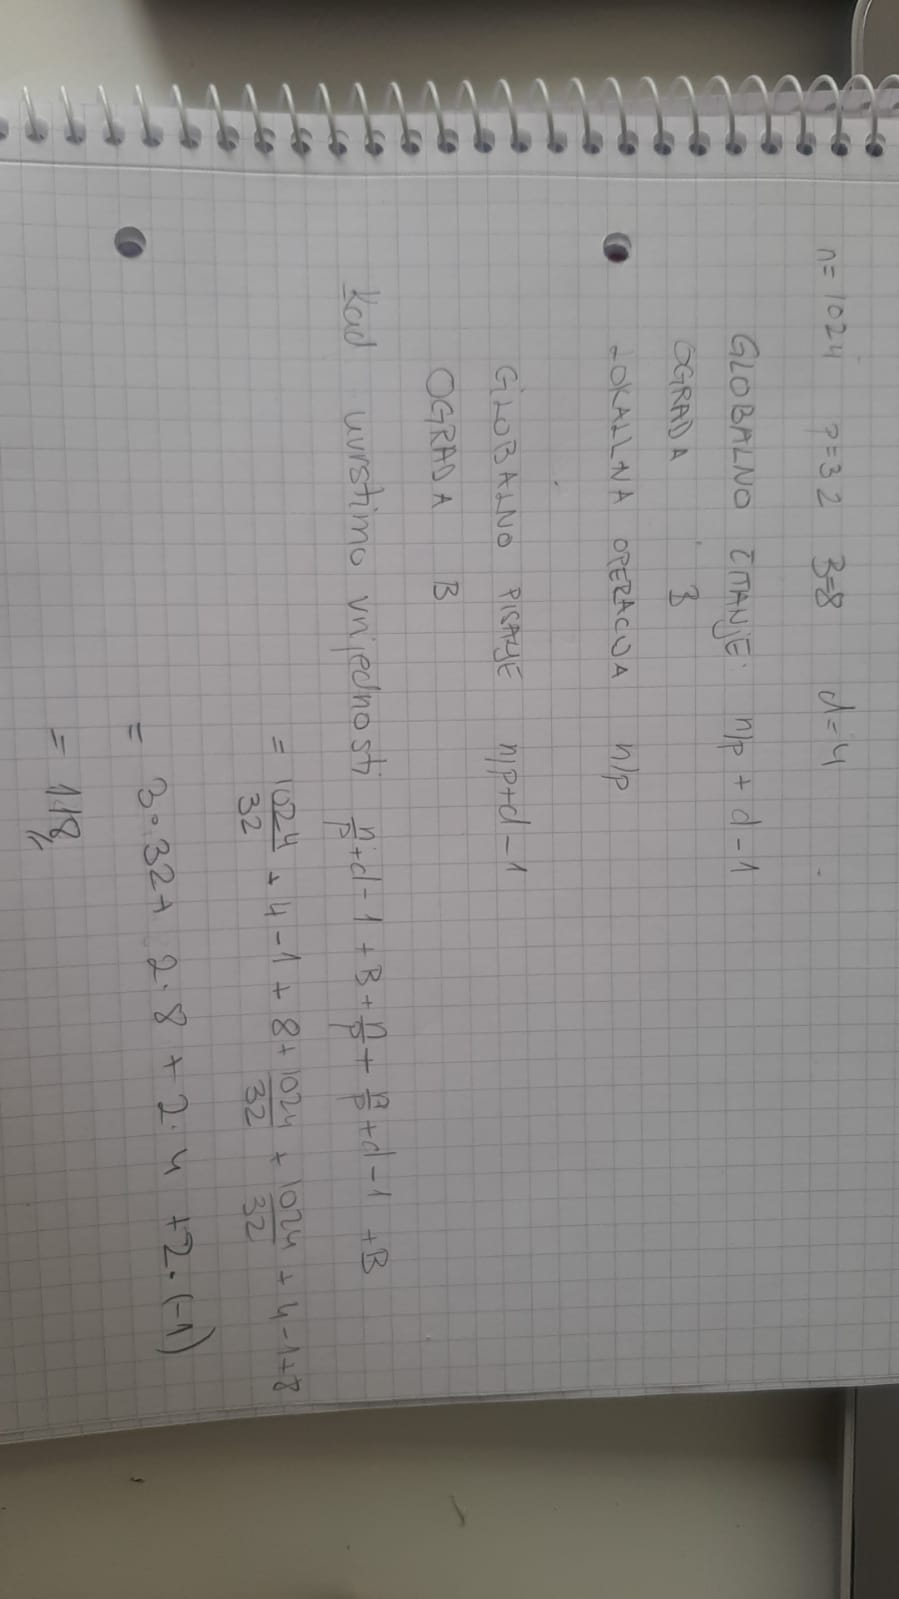 n=1024 p=32 B=8 d=4
GLOBALNO ČITANJE: n/p + d-1
OGRADA B
LOKALLNA OPERACIJA n/p
GLOBALNO PISANJE n/p+d-1
OGRADA B
Kad uvrstimo vrijednosti n/p+d-1+B+n/p+n/p+d-1+B
= 1024/32 + 4-1+8+1024/32 + 1024/32 + 4-1+8
= 3·32+2·8+2·4+2·(-1)
= 118